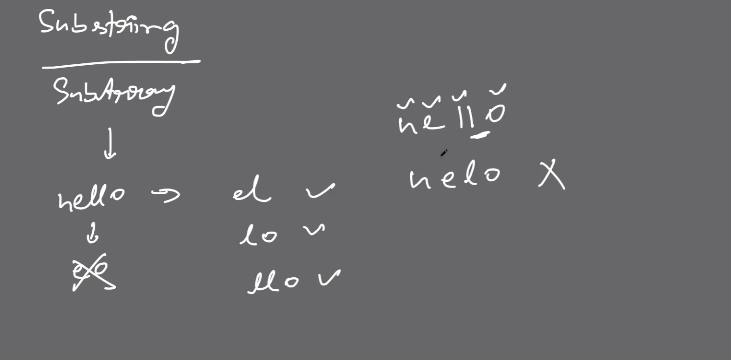 Substring
Subarray
hello → el ✓
lo ✓
llo ✓
eo
hello
helo X